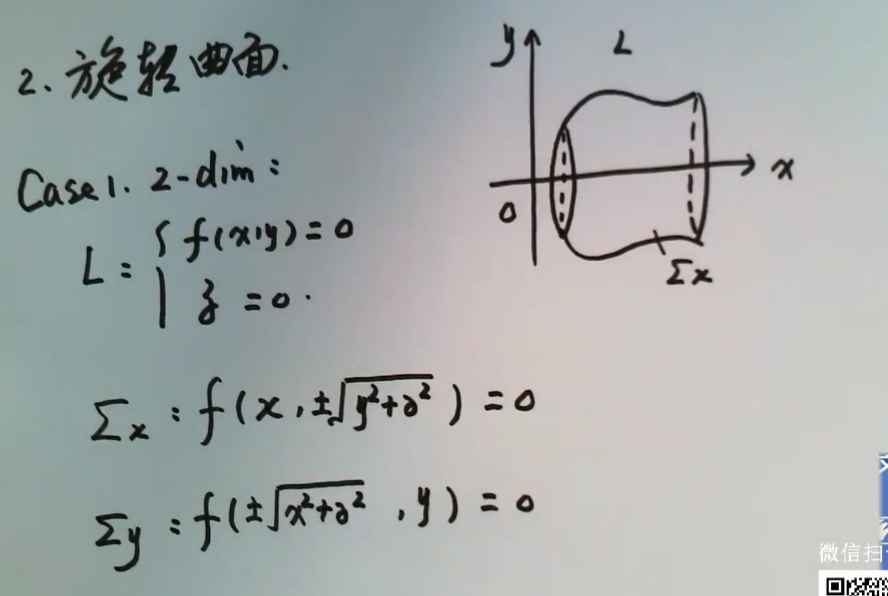 2. 旋转曲面.
Case 1. 2-dim:
L: { f(x,y)=0
z=0.
Σx: f(x, ±√(y²+z²))=0
Σy: f(±√(x²+z²), y)=0
y
L
x
0
Σx
微信扫